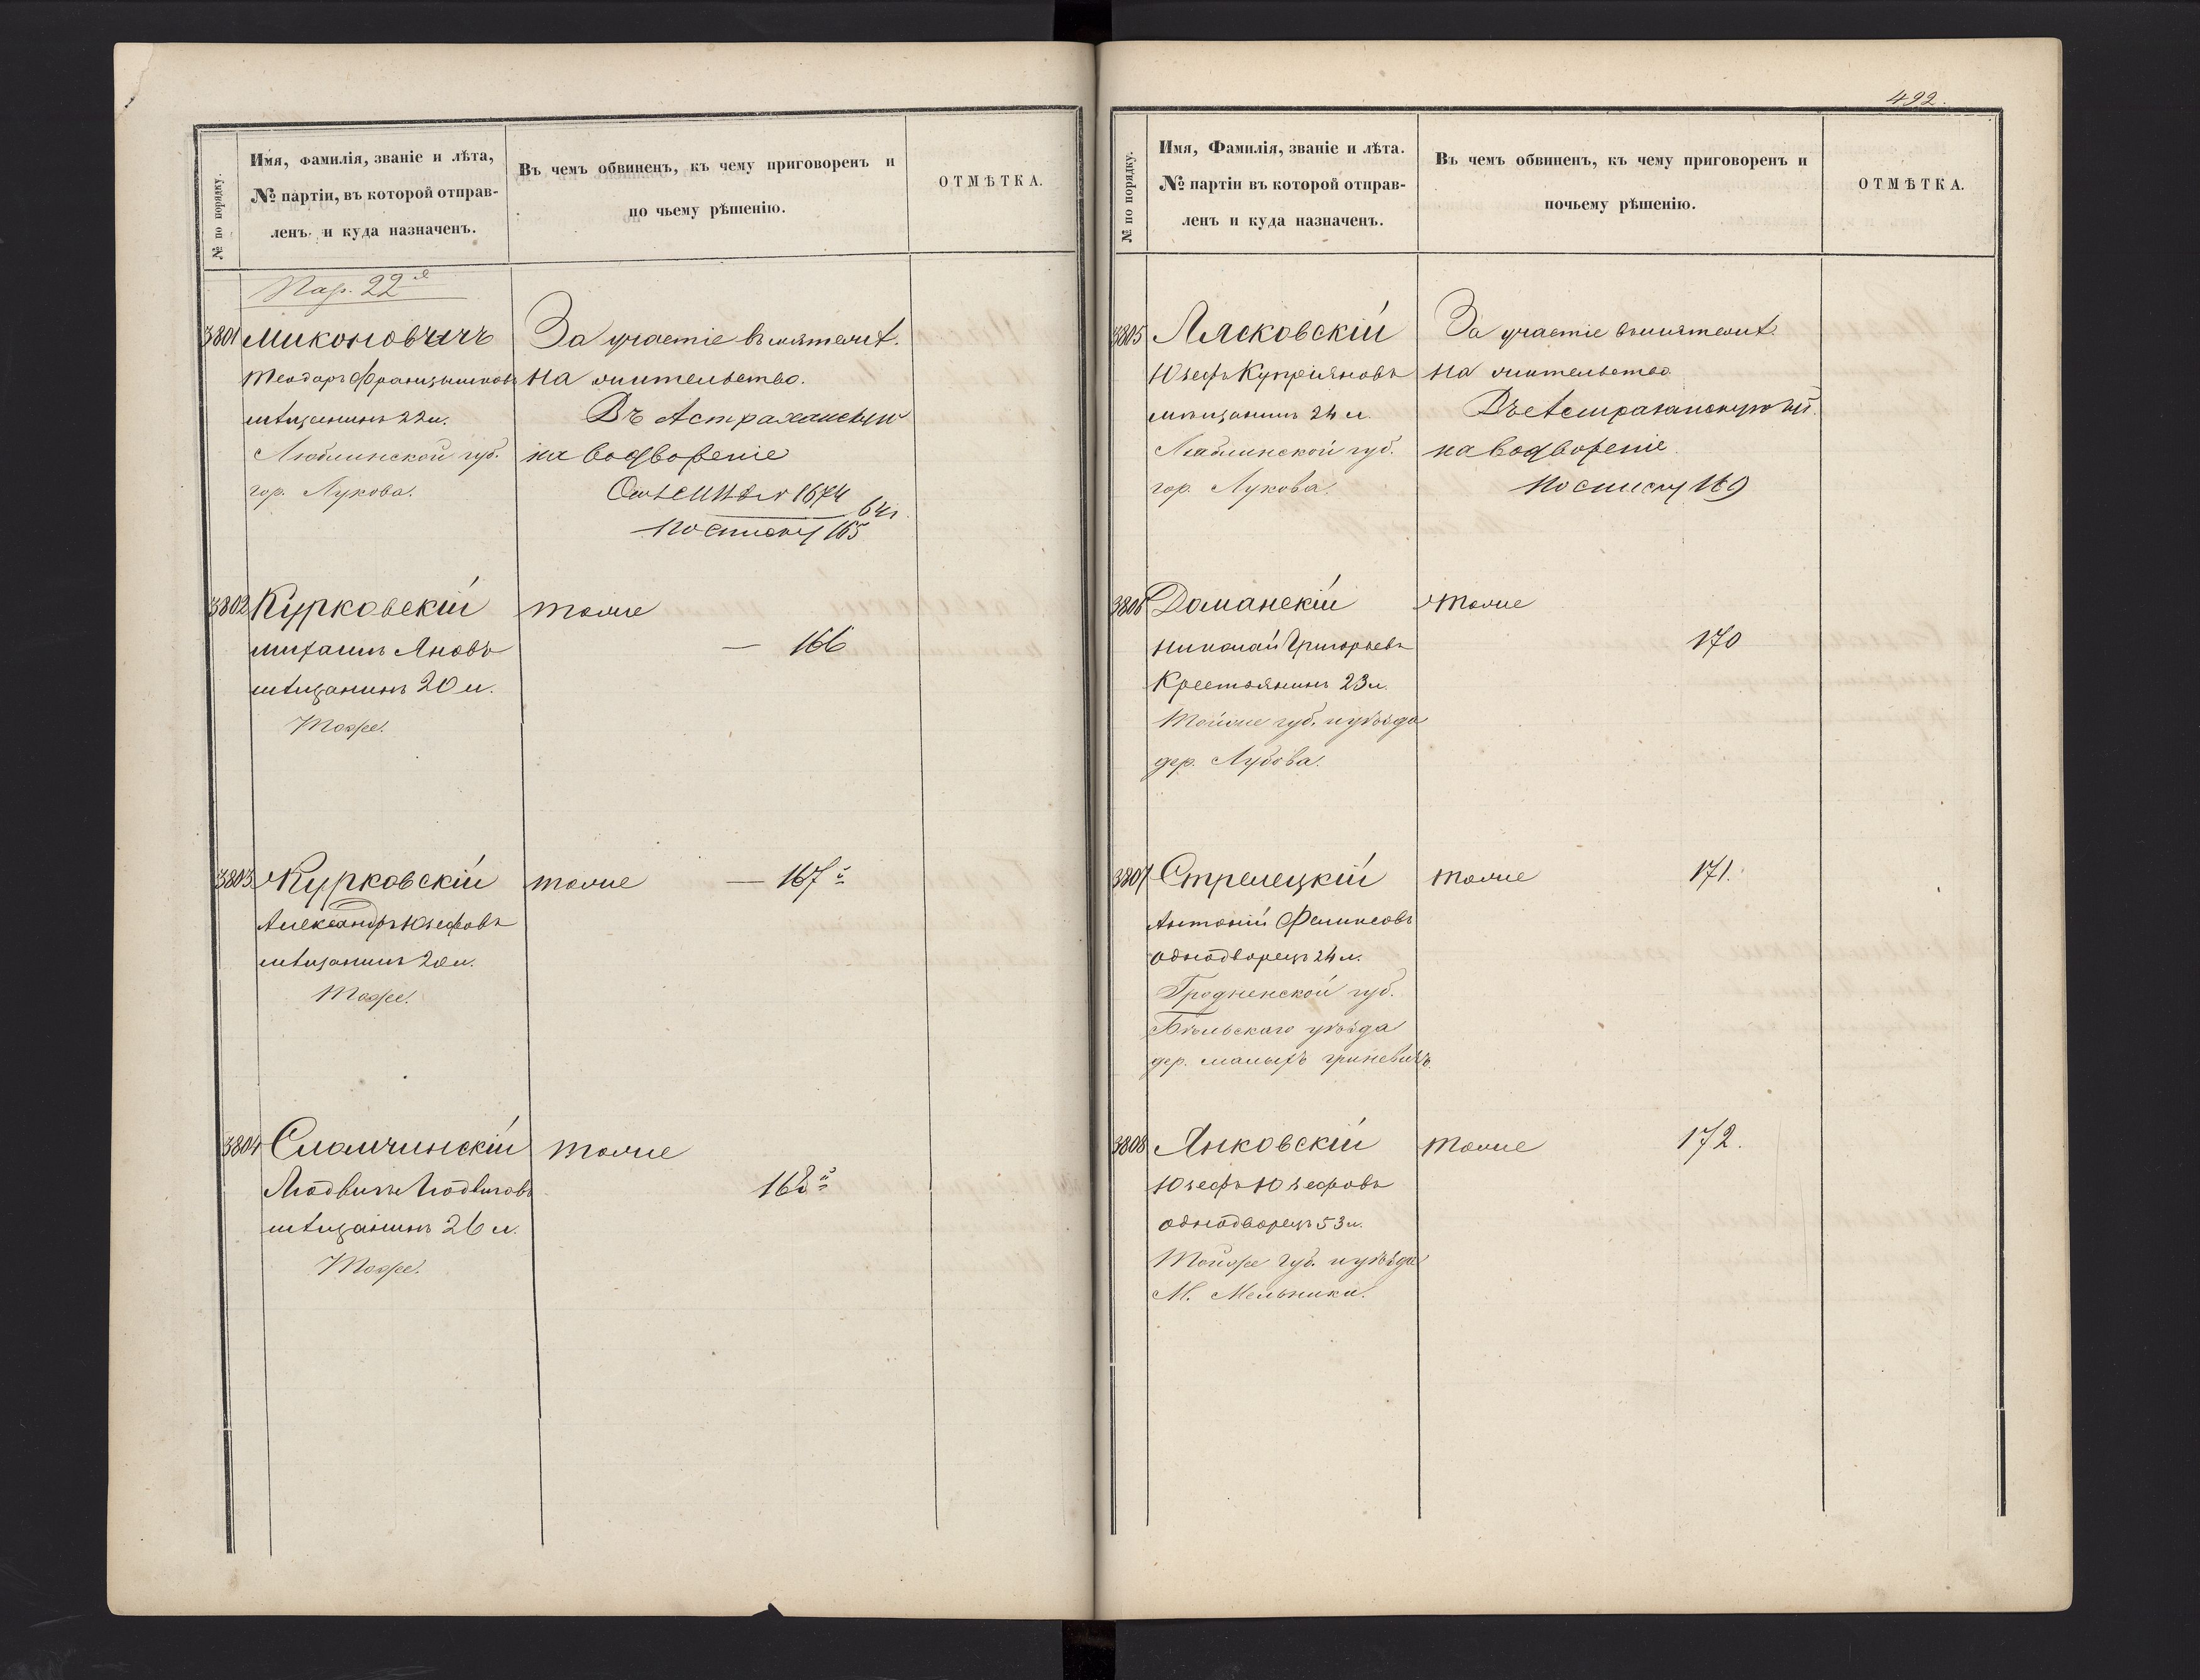 № по порядку.
Имя, Фамилія, званіе и лѣта,
№ партіи, въ которой отправ-
ленъ и куда назначенъ.
Въ чемъ обвиненъ, къ чему приговоренъ и
по чьему рѣшенію.
ОТМѢТКА.
Пар. 22й
3801 Миконовичъ
Теодоръ Францышковъ
мѣщанинъ 22 л.
Люблинской губ.
гор. Лукова.
За участіе въ мятежѣ.
на жительство.
Въ Астраханскую
на водвореніе
1674
64 г.
по списку 165
3802 Курковскій
Михаилъ Яновъ
мѣщанинъ 20 л.
Тоже.
тоже
— 166
3803 Курковскій
Александръ Юзефовъ
мѣщанинъ 20 л.
Тоже.
тоже — 167й
3804 Сломчинскій
Людвигъ Людвиговъ
мѣщанинъ 26 л.
Тоже.
тоже
168й
492.
№ по порядку.
Имя, Фамилія, званіе и лѣта.
№ партіи въ которой отправ-
ленъ и куда назначенъ.
Въ чемъ обвиненъ, къ чему приговоренъ и
почьему рѣшенію.
ОТМѢТКА.
3805 Лясковскій
Юзефъ Купріяновъ
мѣщанинъ 24 л.
Люблинской губ.
гор. Лукова.
За участіе въ мятежѣ.
на жительство
Въ Астраханскую
на водвореніе.
по списку 169
3806 Доманскій
Николай Григорьевъ
Крестьянинъ 23 л.
Тойже губ. и уѣзда
дер. Лубова.
тоже
170
3807 Стрелецкій
Антоній Феликсовъ
однодворецъ 24 л.
Гродненской губ.
Бѣльскаго уѣзда
дер. малыхъ гриневичъ.
тоже 171.
3808 Янковскій
Юзефъ Юзефовъ
однодворецъ 53 л.
Тойже губ. и уѣзда
М. Мельники.
тоже 172.